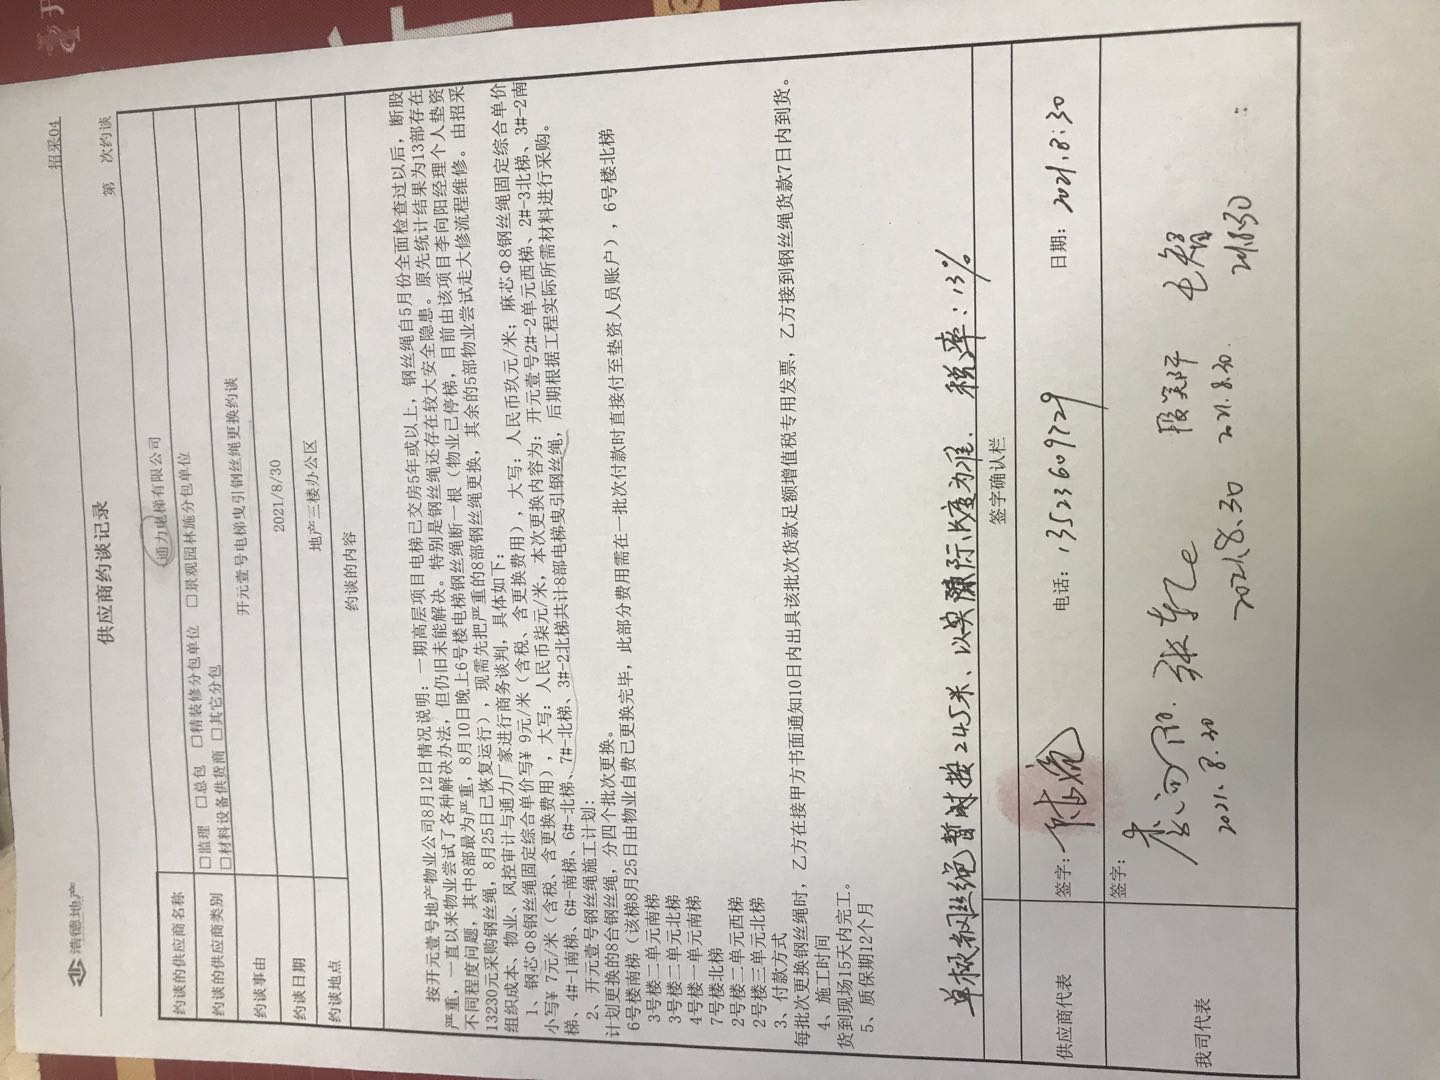 浩德地产
招采04
供应商约谈记录
第 次约谈
约谈的供应商名称 通力电梯有限公司
约谈的供应商类别 □监理 □总包 □精装修分包单位 □景观园林施分包单位
□材料设备供货商 □其它分包
约谈事由 开元壹号电梯曳引钢丝绳更换约谈
约谈日期 2021/8/30
约谈地点 地产三楼办公区
约谈的内容
按开元壹号地产物业公司8月12日情况说明：一期高层项目电梯已交房5年或以上，钢丝绳自5月份全面检查过以后，断股
严重，一直以来物业尝试了各种解决办法，但仍旧未能解决。特别是钢丝绳还存在较大安全隐患。原先统计结果为13部存在
不同程度问题，其中8部最为严重，8月10日晚上6号楼电梯钢丝绳断一根（物业已停梯，目前由该项目李向阳经理个人垫资
13230元采购钢丝绳，8月25日已恢复运行），现需先把严重的8部钢丝绳更换，其余的5部物业尝试走大修流程维修。由招采
组织成本、物业、风控审计与通力厂家进行商务谈判，具体如下：
1、钢芯Φ8钢丝绳固定综合单价写¥ 9元/米（含税、含更换费用），大写：人民币玖元/米；麻芯Φ8钢丝绳固定综合单价
小写¥ 7元/米（含税、含更换费用），大写：人民币柒元/米，本次更换内容为：开元壹号2#-2单元西梯、2#-3北梯、3#-2南
梯、4#-1南梯、6#-南梯、6#-北梯、7#-北梯、3#-2北梯共计8部电梯曳引钢丝绳，后期根据工程实际所需材料进行采购。
2、开元壹号钢丝绳施工计划：
计划更换的8台钢丝绳，分四个批次更换。
6号楼南梯（该梯8月25日由物业自费已更换完毕，此部分费用需在一批次付款时直接付至垫资人员账户），6号楼北梯
3号楼二单元南梯
3号楼二单元北梯
4号楼一单元南梯
7号楼北梯
2号楼二单元西梯
2号楼三单元北梯
3、付款方式
每批次更换钢丝绳时，乙方在接甲方书面通知10日内出具该批次货款足额增值税专用发票，乙方接到钢丝绳货款7日内到货。
4、施工时间
货到现场15天内完工。
5、质保期12个月
单根钢丝绳暂时按245米、以实际长度为准. 税率：13%
签字确认栏
供应商代表 签字： 电话：13523609729 日期：2021.8.30
我司代表 签字：
李向阳 张 毛智
2021.8.30 2021.8.30 2021.8.30. 2021.8.30